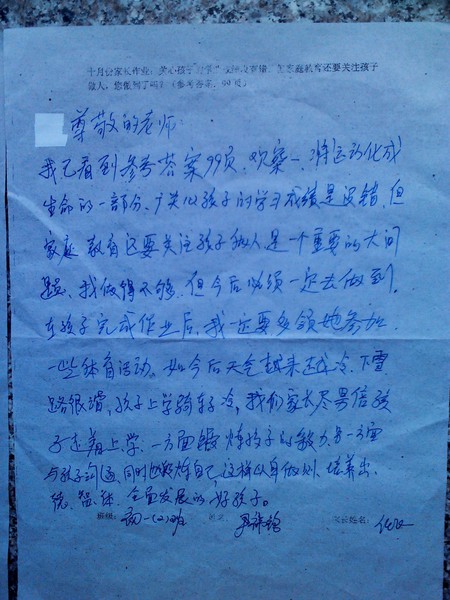 十月份家长作业:关心孩子的学习成绩没有错,但家庭教育还要关注孩子
做人,您做到了吗?(参考答案:99页)
尊敬的老师:
我已看到参考答案99页,答案一,将运动化成
生命的一部分、关心孩子的学习成绩是没错,但
家庭教育还要关注孩子做人是一个重要的大问
题、我做得不够,但今后必须一定去做到。
在孩子完成作业后,我一定要多领她参加
一些体育活动。如今后天气越来越冷、下雪
路很滑,孩子上学骑车子冷,我们家长尽量陪孩
子走着上学、一方面锻炼孩子的毅力另一方面
与孩子沟通,同时也锻炼自己,这样以身做则、培养出
德、智、体、全面发展的好孩子。
班级:初一(2)班
家长姓名: